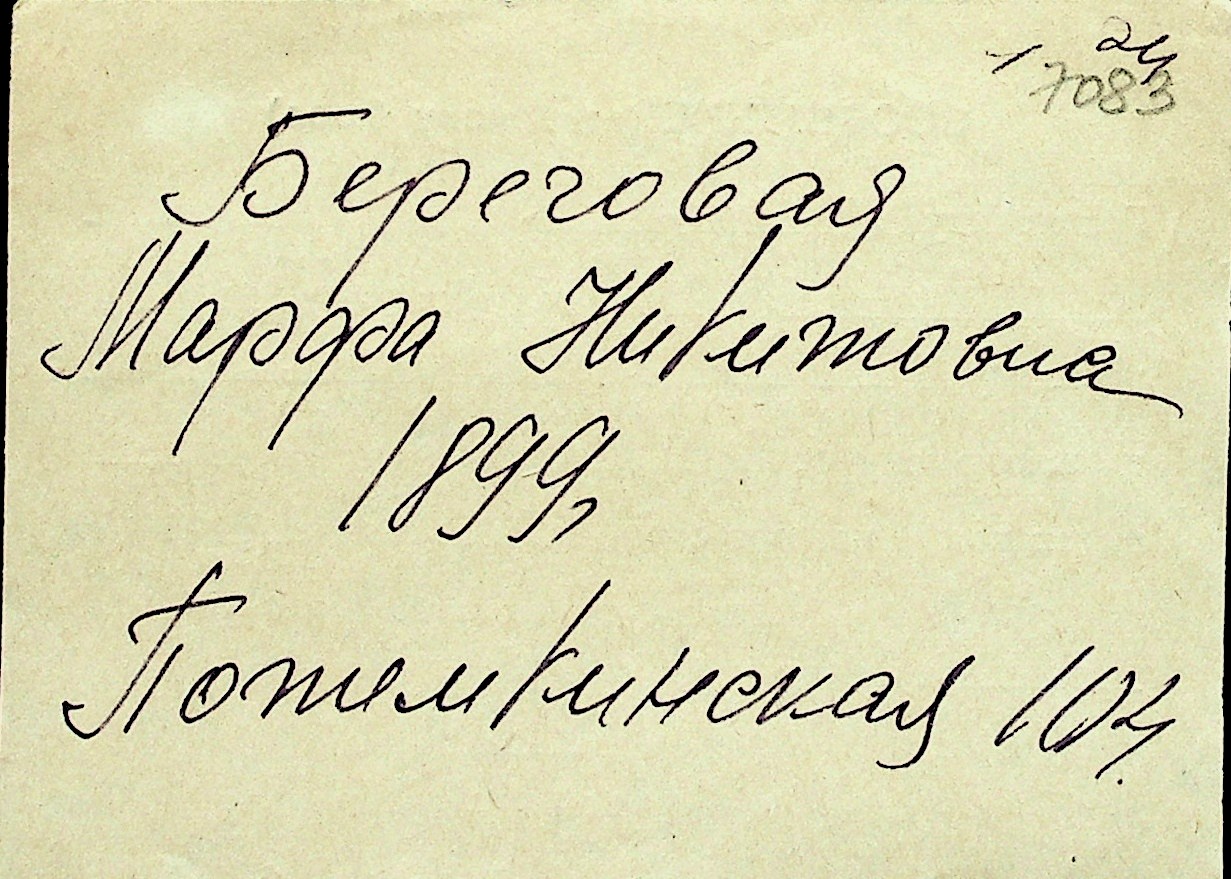 24
7083
Береговая
Марфа Никитовна
1899,
Потемкинская 104.